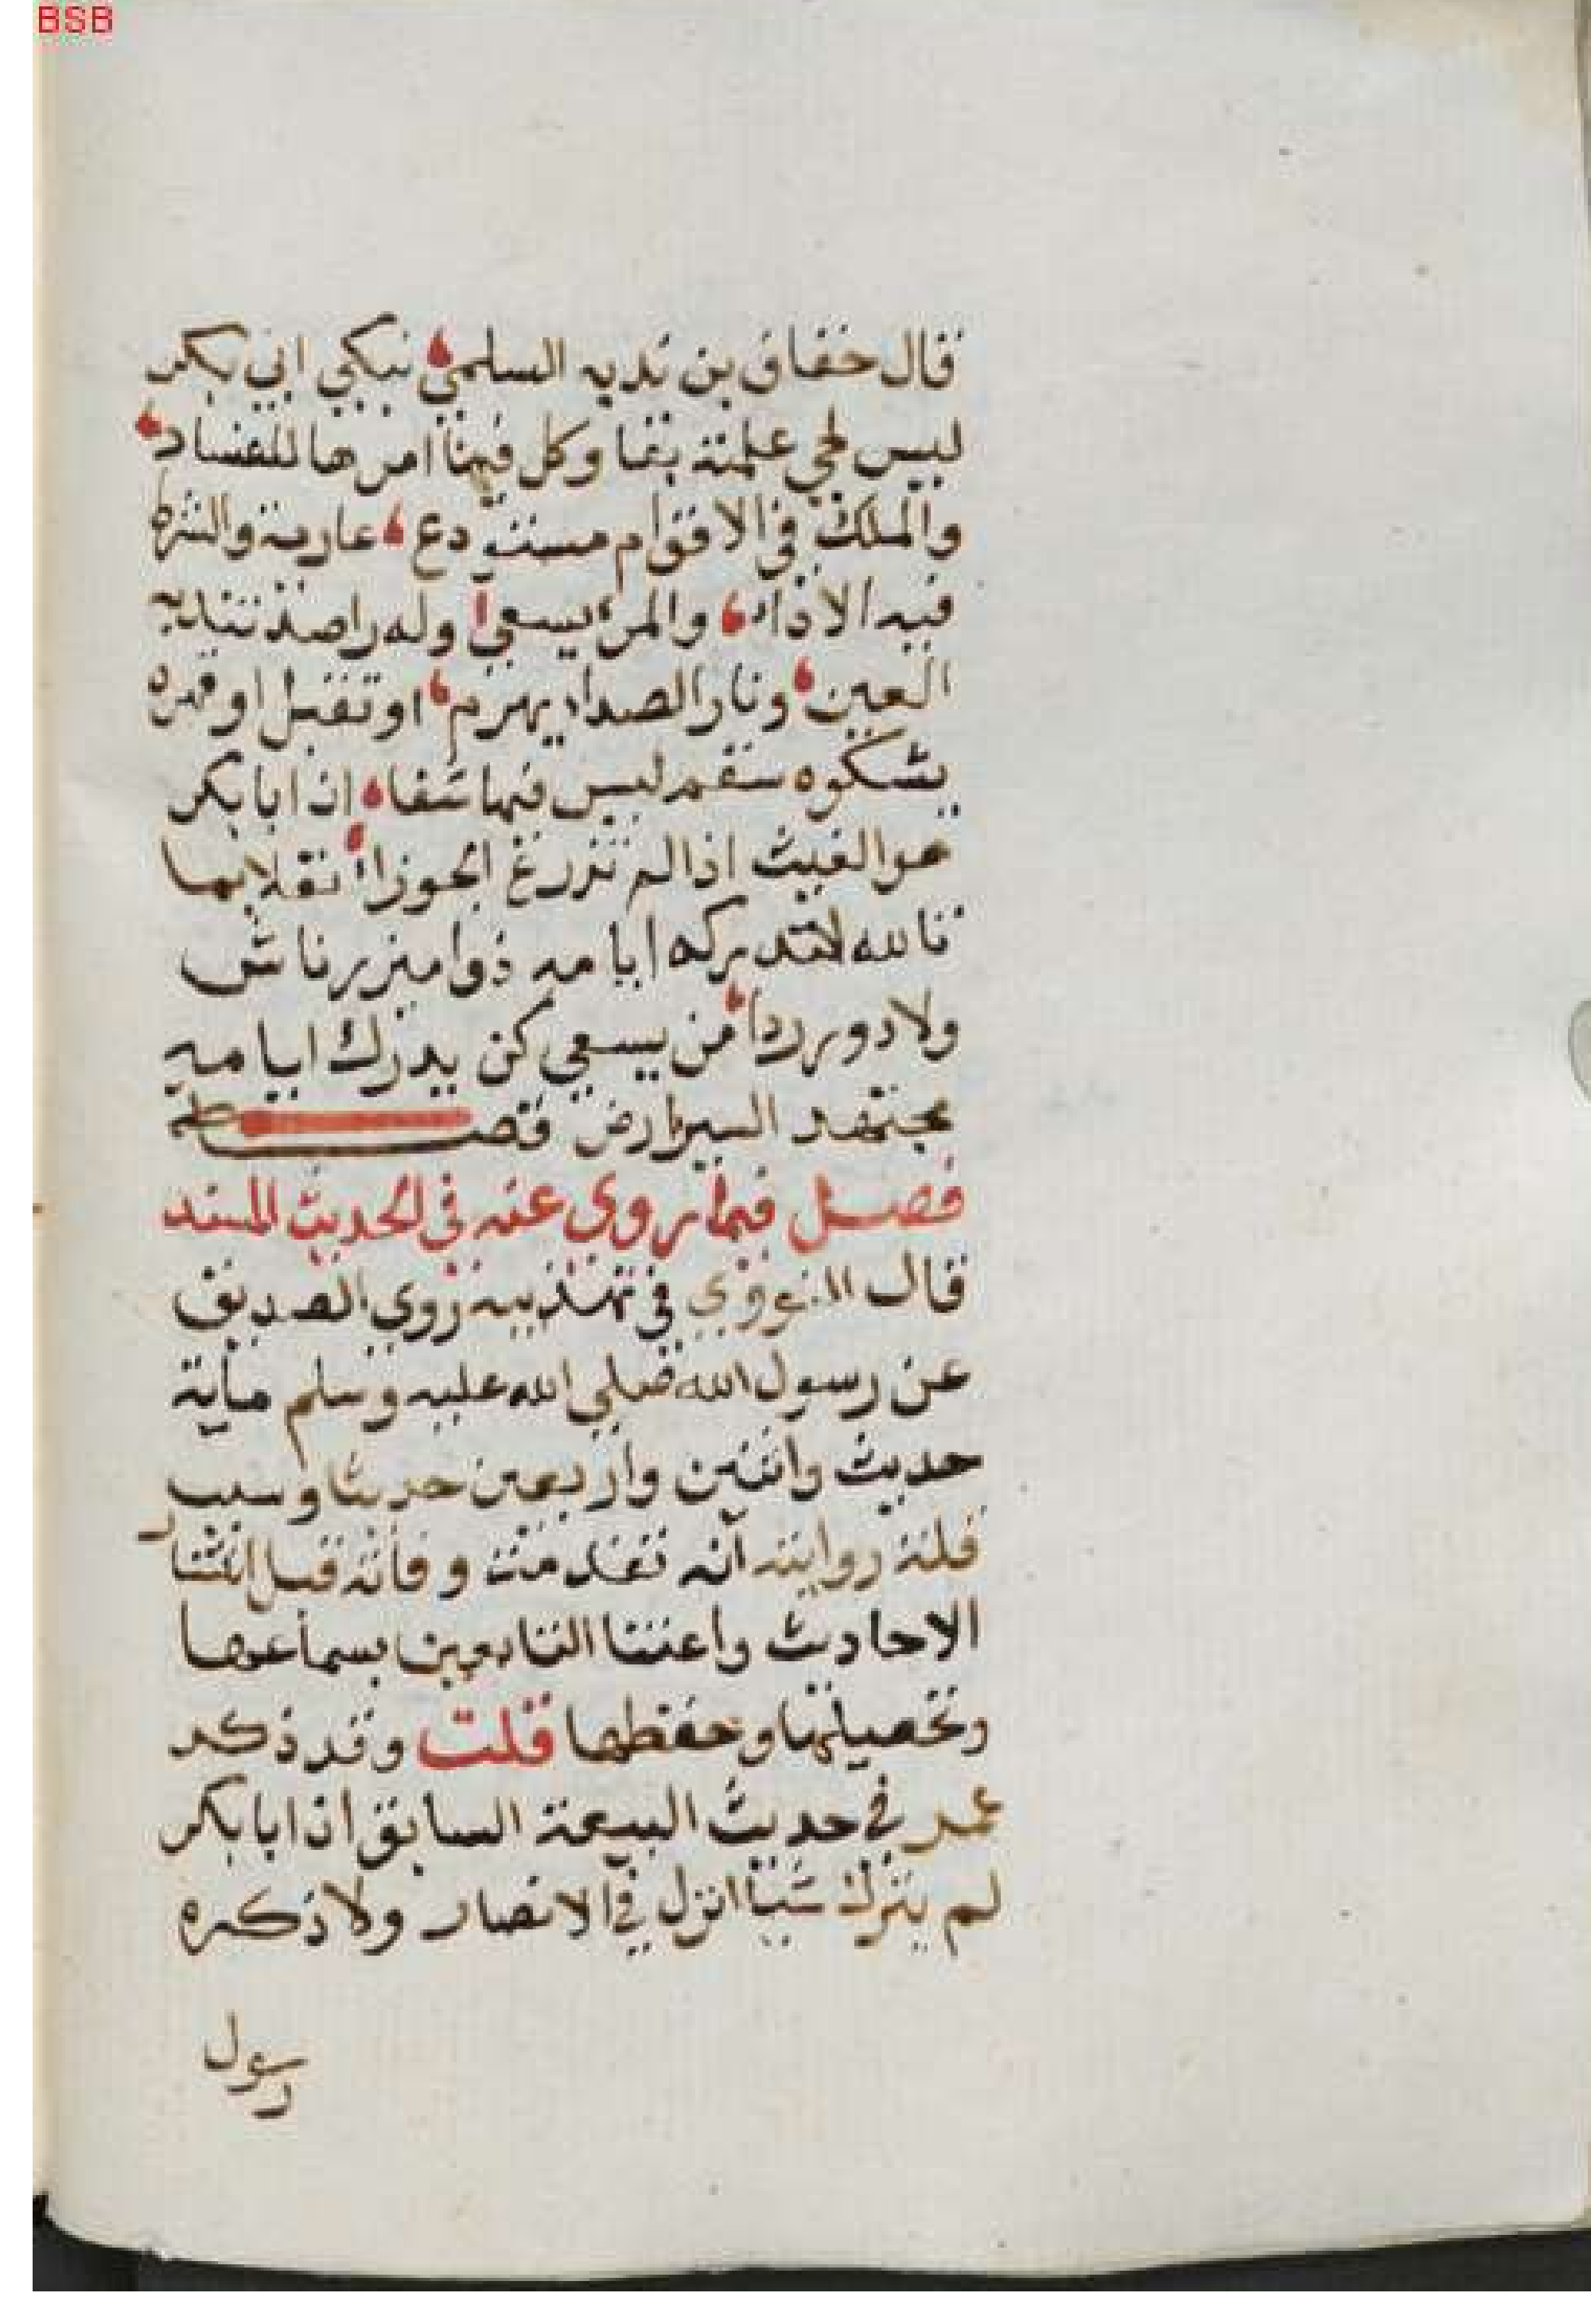 BSB
قال خفاق بن نديه السلمي نبكي ابي بكر
ليس لحي علمته بقا وكل فيهنا امرها للفساد
والملك في الاقوام مستودع عارية والشرط
فيه الاذاء والمرء يسعي وله راصد تنديه
العين ونار الصداء يهرم او تقتل او قهره
يشكوه سقم ليس فيها شفاء ان ابا بكر
هو الغيث اذا لم تزرع الجوزاء نقلا بما
تالله لا يدركه ايامه ذوا ميزر ناش
ولا دو ردا من يسعي كن يدرك ايامه
مجتهد السير ارض
فصل فيما روي عنه في الحديث المسند
قال النووي في تهذيبه روي الصديق
عن رسول الله صلي الله عليه وسلم ماية
حديث واثنين واربعين حديثا وسبب
قلة روايته انه تقدمت وفاته قبل انتشار
الاحاديث واعتنا التابعين بسماعها
وتحصيلها وحفظها قلت وقد ذكر
عمر في حديث البيعة السابق ان ابا بكر
لم يترك شيا انزل في الانصار ولا ذكره
رسول